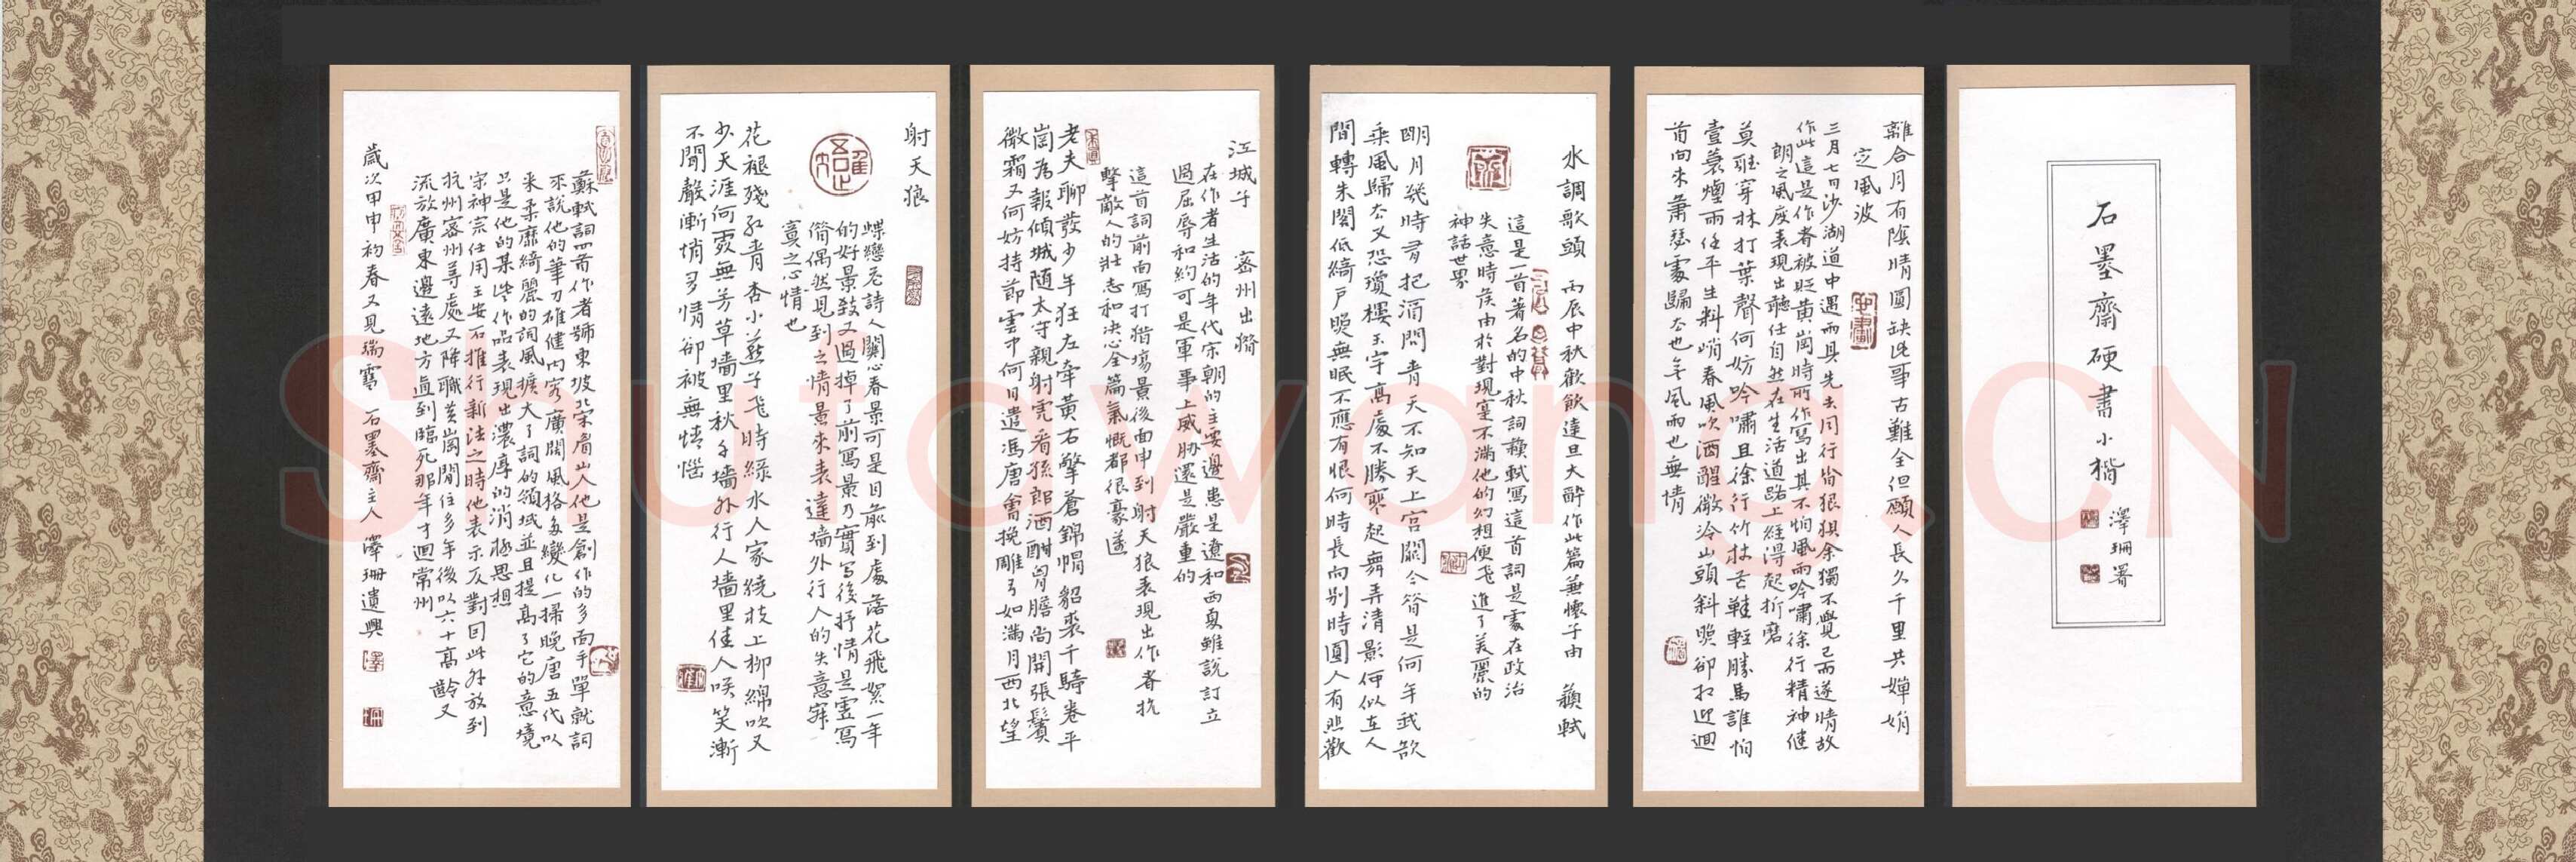 石墨齋硬書小楷
澤珊署
離合月有陰晴圓缺此事古難全但願人長久千里共嬋娟
定風波
三月七日沙湖道中遇雨具先去同行皆狼狽余獨不覺已而遂晴故
作此這是作者被貶黃崗時所作寫出其不怕風雨吟嘯徐行精神健
朗之風度表現出聽任自然在生活道路上經得起折磨
莫聽穿林打葉聲何妨吟嘯且徐行竹杖芒鞋輕勝馬誰怕
壹蓑煙雨任平生料峭春風吹酒醒微冷山頭斜照卻相迎迴
首向來蕭瑟處歸去也無風雨也無情
水調歌頭 丙辰中秋歡飲達旦大醉作此篇兼懷子由 蘇軾
這是一首著名的中秋詞蘇軾寫這首詞是處在政治
失意時候由於對現實不滿他的幻想便飛進了美麗的
神話世界
明月幾時有把酒問青天不知天上宮闕今昝是何年我欲
乘風歸去又恐瓊樓玉宇高處不勝寒起舞弄清影何似在人
間轉朱閣低綺戶照無眠不應有恨何時長向別時圓人有悲歡
江城子 密州出獵
在作者生活的年代宋朝的主要邊患是遼和西夏雖說訂立
過屈辱和約可是軍事上威胁還是嚴重的
這首詞前面寫打猎場景後面申到射天狼表現出作者抗
擊敵人的壯志和决心全篇氣慨都很豪邁
老夫聊發少年狂左牽黃右擎蒼錦帽貂裘千騎卷平
崗為報傾城随太守親射虎看孫郎酒酣胷膽尚開張鬢
微霜又何妨持節雲中何日遣馮唐會挽雕弓如滿月西北望
射天狼
蝶戀花詩人關心春景可是目前到處落花飛絮一年
的好景致又過掉了前寫景乃實寫後抒情是虛寫
偹偶然見到之情景來表達墻外行人的失意寂
寞之心情也
花褪殘紅青杏小燕子飛時綠水人家繞枝上柳綿吹又
少天涯何處無芳草墙里秋千墙外行人墙里佳人咲笑漸
不聞聲漸悄多情卻被無情惱
蘇軾詞四首作者號東坡北宋眉山人他是創作的多面手單就詞
來說他的筆力雄健内容廣闊風格多變化一掃晚唐五代以
来柔靡綺麗的詞風擴大了詞的領域並且提高了它的意境
只是他的某些作品表現出濃厚的消極思想
宋神宗任用王安石推行新法之時他表示反對因此外放到
抗州密州等處又降職黃崗閒住多年後以六十高齡又
流放廣東邊遠地方直到臨死那年才迴常州
歲次甲申初春又見瑞雪 石墨齋主人 澤珊遣興
Shuhuawang.CN